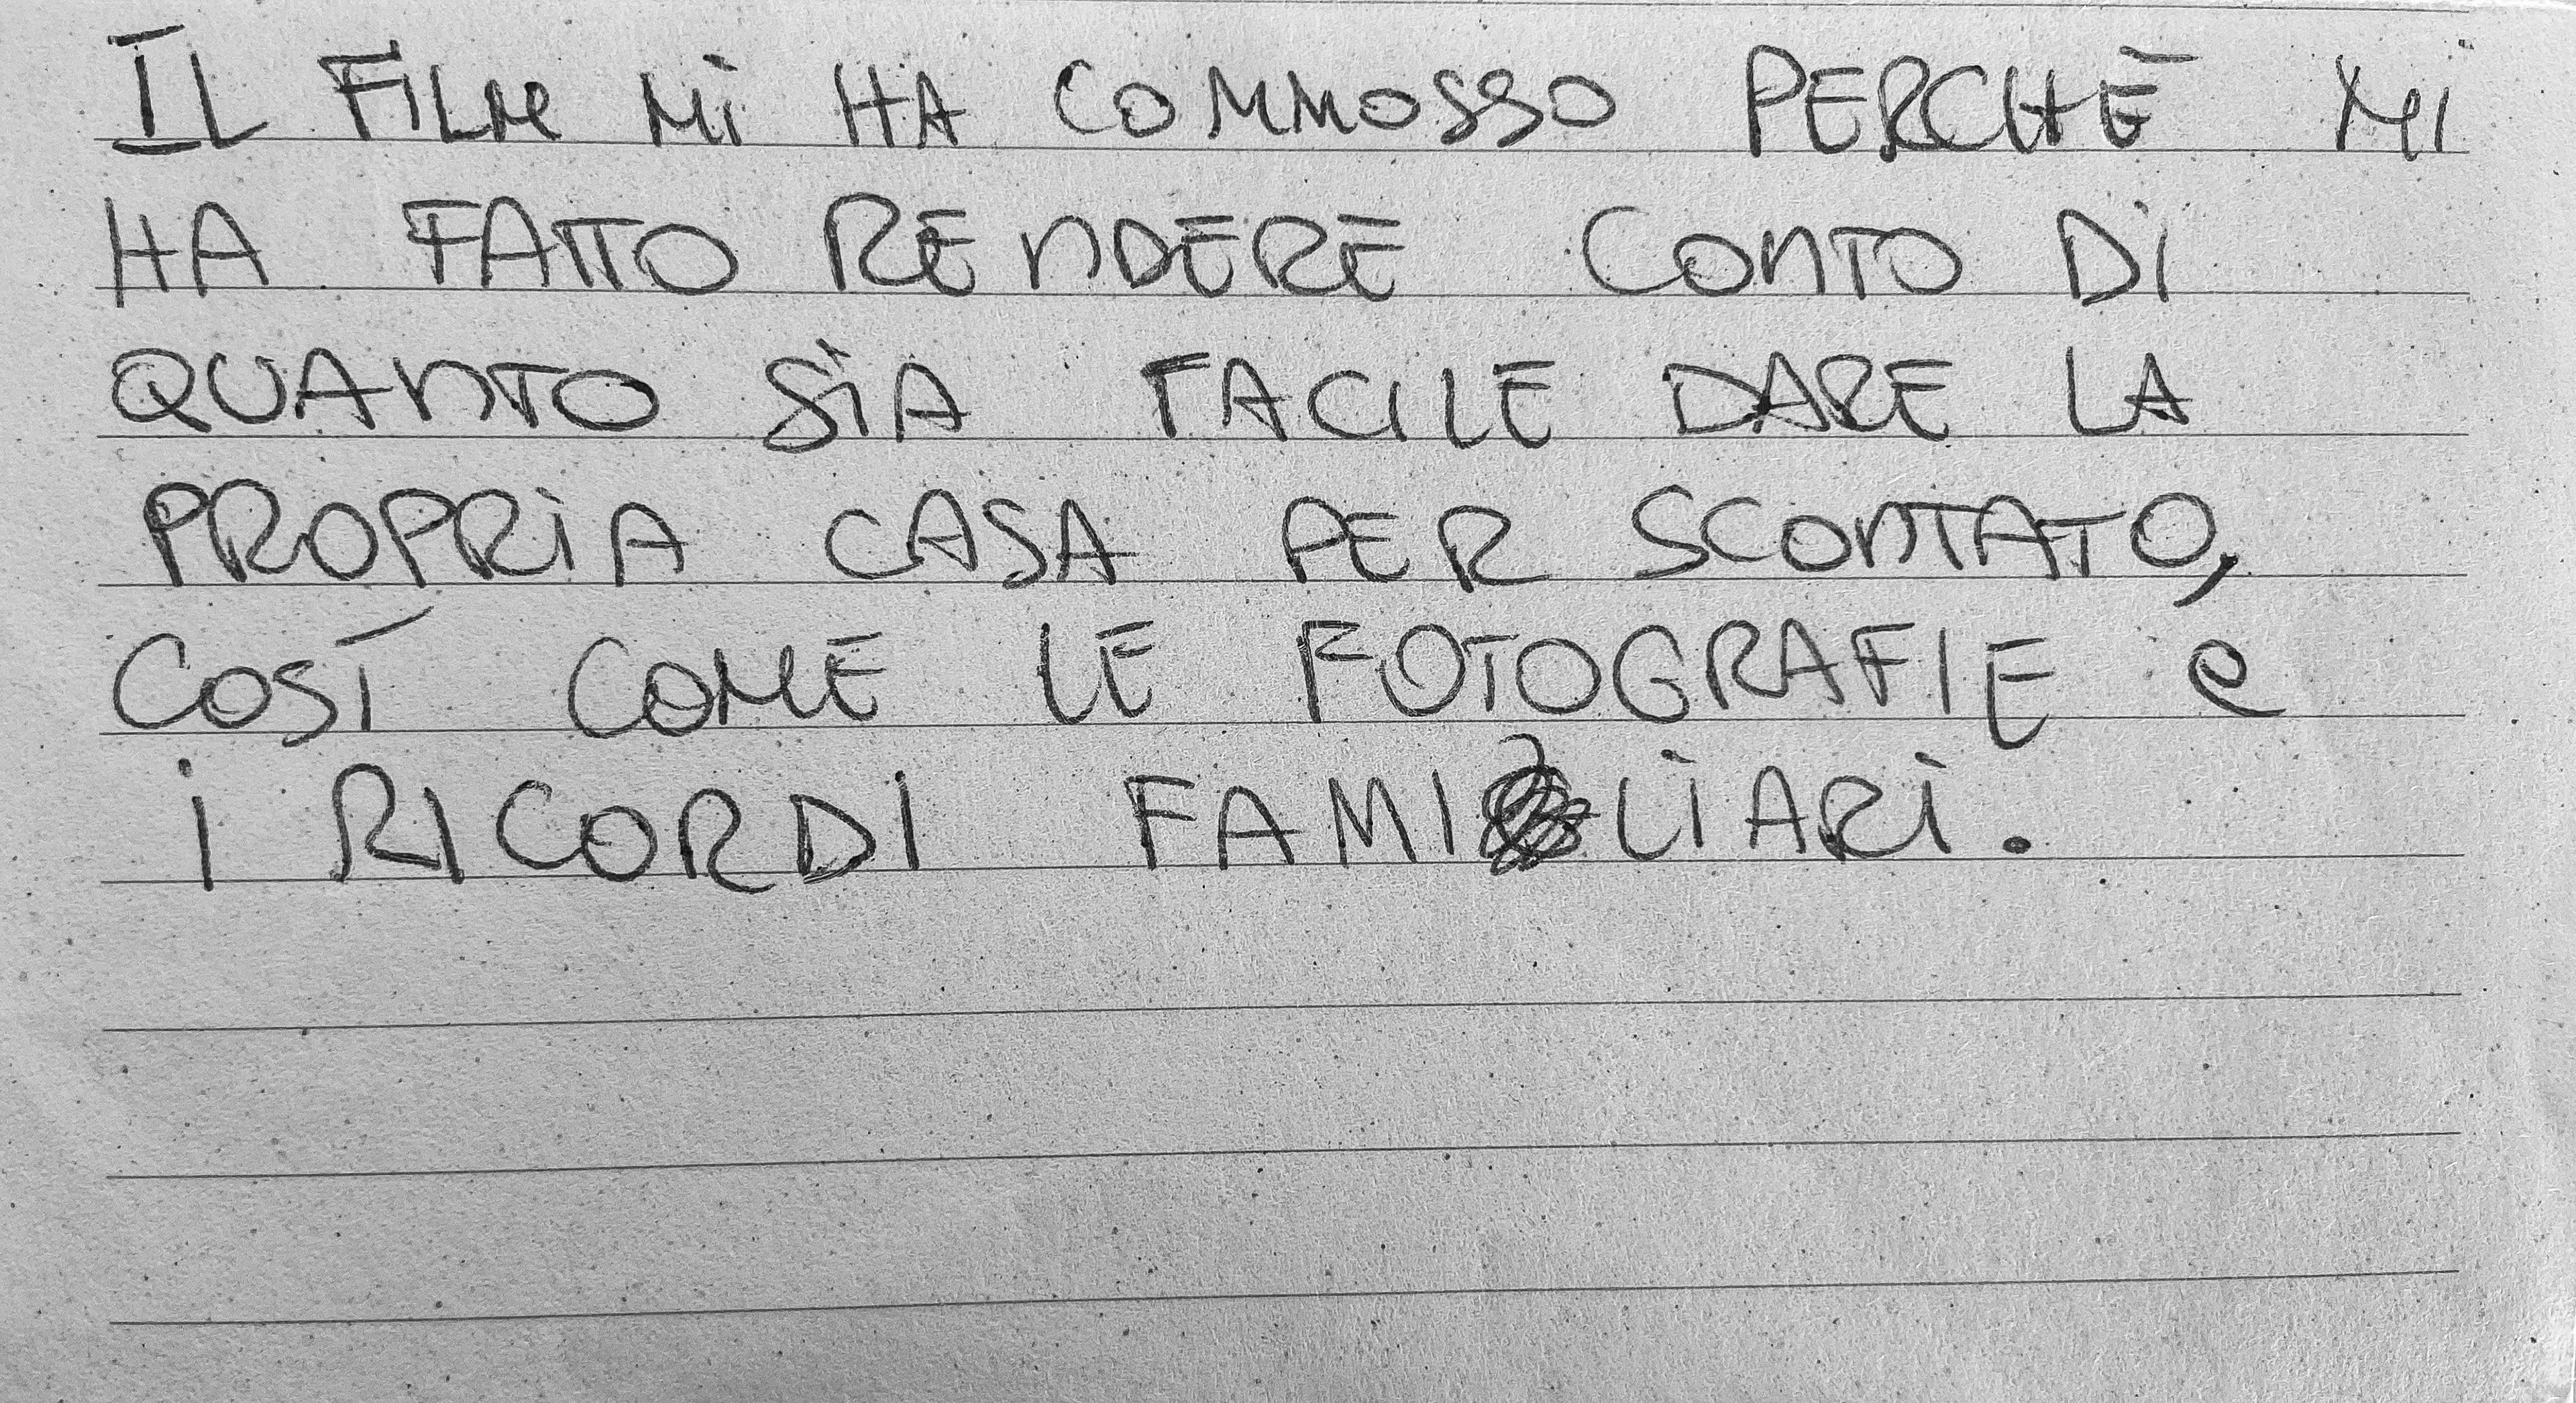 IL FILM Mi HA COMMOSSO PERCHÉ MI
HA FATTO RENDERE CONTO Di
QUANTO SiA FACILE DARE LA
PROPRiA CASA PER SCONTATO,
COSÍ COME LE FOTOGRAFIE e
i RICORDI FAMILiARi.